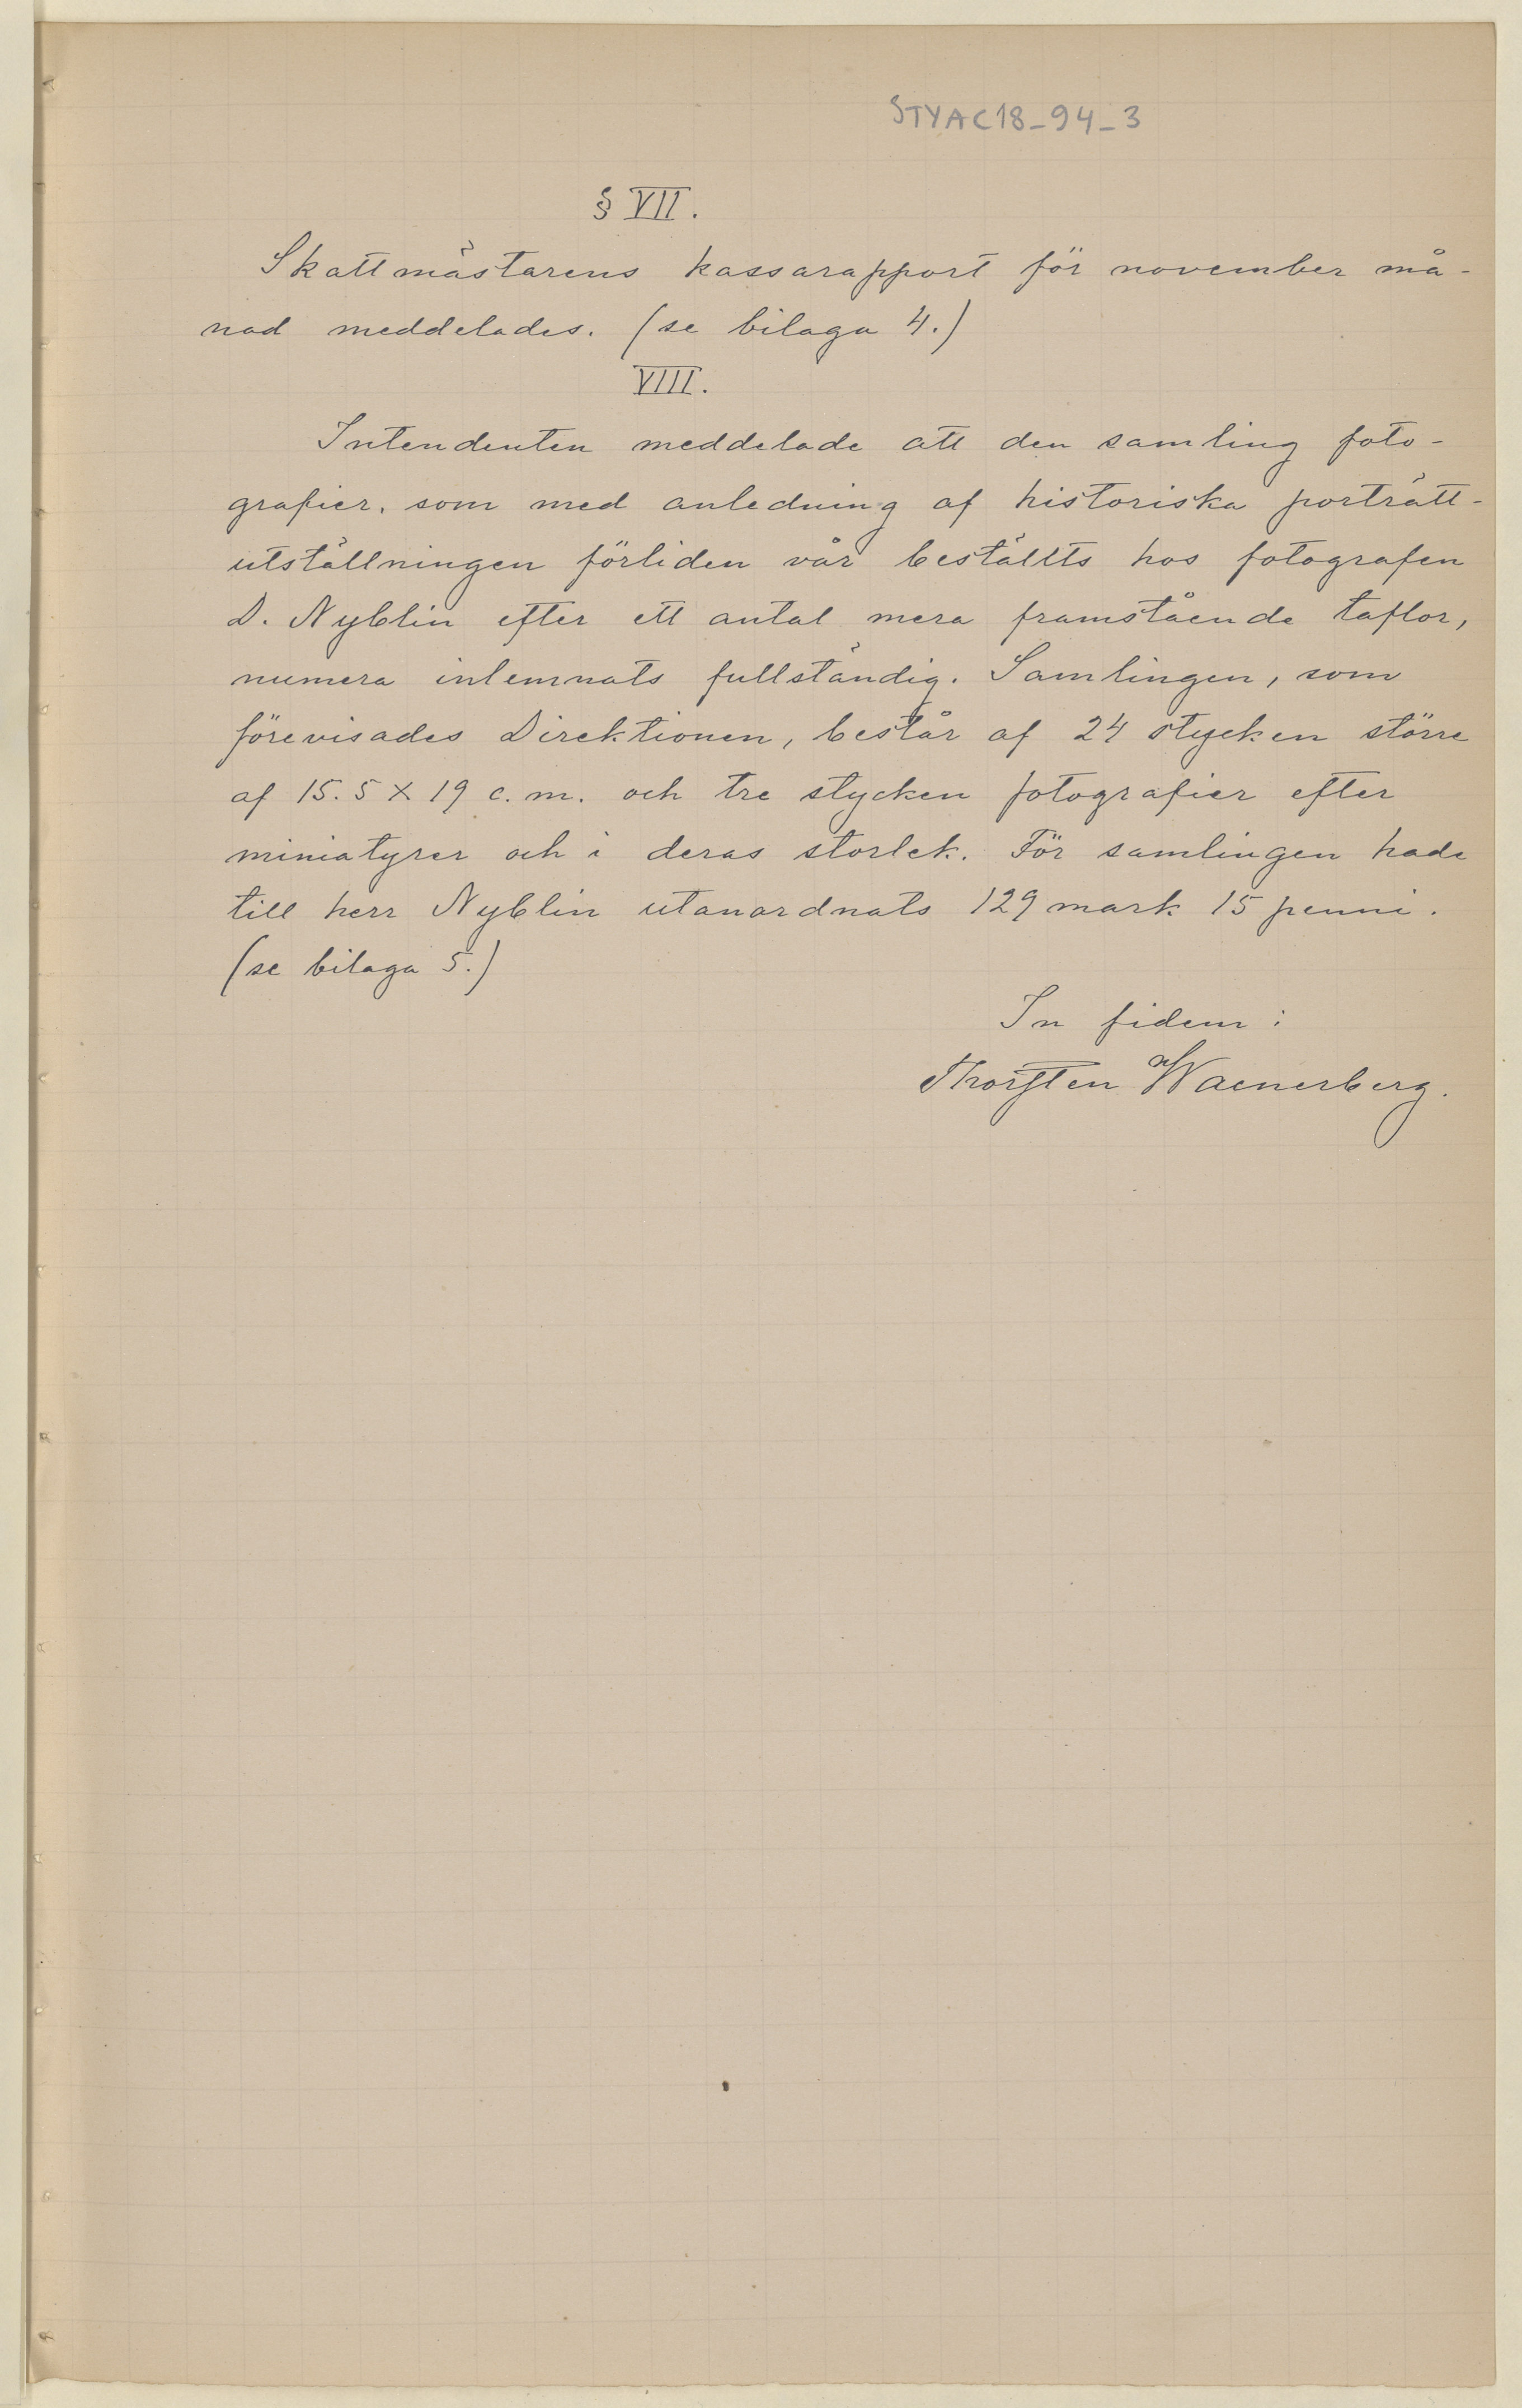 STYAC18_94_3
§ VII.
Skattmästarens kassarapport för november må-
nad meddelades. (se bilaga 4.)
VIII.
Intendenten meddelade att den samling foto-
grafier, som med anledning af historiska porträtt-
utställningen förliden vår beställts hos fotografen
D. Nyblin efter ett antal mera framstående taflor,
numera inlemnats fullständig. Samlingen, som
förevisades Direktionen, består af 24 stycken större
af 15.5 X 19 c.m. och tre stycken fotografier efter
miniatyrer och i deras storlek. För samlingen hade
till herr Nyblin utanordnats 129 mark 15 penni.
(se bilaga 5.)
In fidem:
Thorsten Waenerberg.